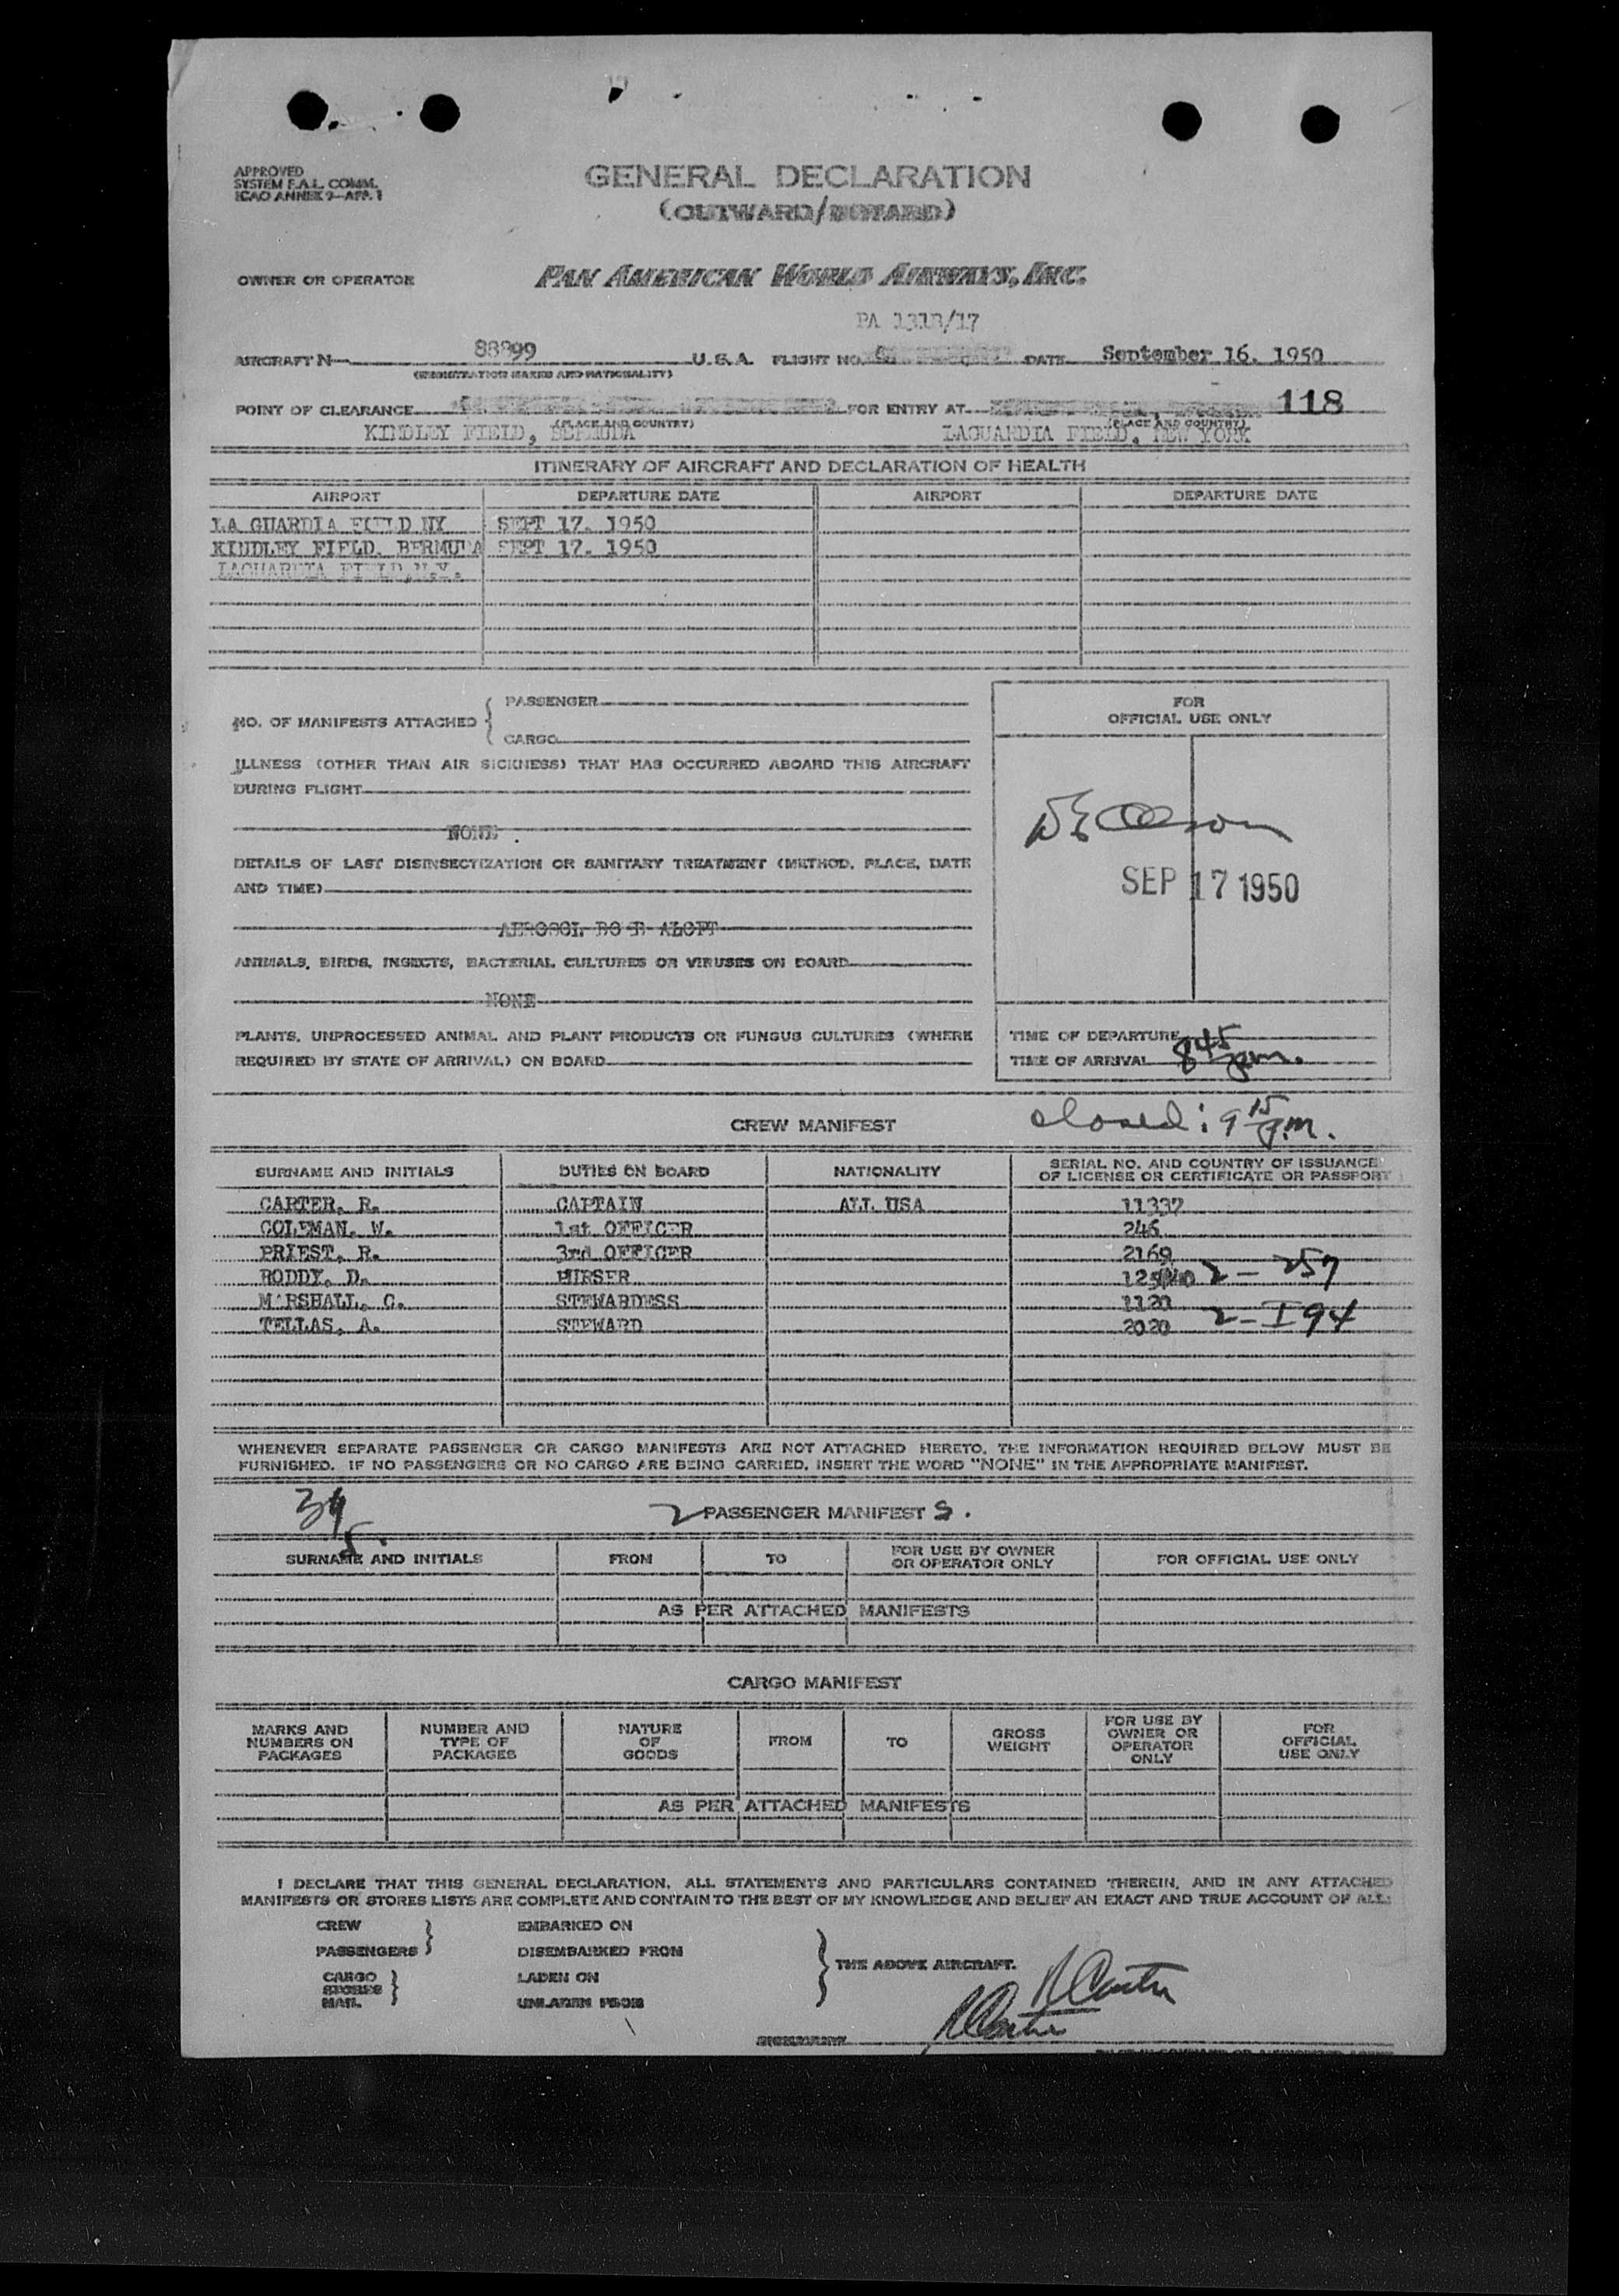 APPROVED
SYSTEM F.A.L. COMM.
ICAO ANNEX 9—APP. 1
GENERAL DECLARATION
(OUTWARD/INWARD)
OWNER OR OPERATOR PAN AMERICAN WORLD AIRWAYS, INC.
PA 131B/17
AIRCRAFT N 88899 U.S.A. FLIGHT NO. DATE September 16. 1950
(REGISTRATION MARKS AND NATIONALITY)
POINT OF CLEARANCE FOR ENTRY AT 118
(PLACE AND COUNTRY) (PLACE AND COUNTRY)
KINDLEY FIELD, BERMUDA LAGUARDIA FIELD, NEW YORK
ITINERARY OF AIRCRAFT AND DECLARATION OF HEALTH
AIRPORT DEPARTURE DATE AIRPORT DEPARTURE DATE
LA GUARDIA FIELD NY SEPT 17. 1950
KINDLEY FIELD. BERMUDA SEPT 17. 1950
LAGUARDIA FIELD,N.Y.
NO. OF MANIFESTS ATTACHED { PASSENGER
CARGO
FOR
OFFICIAL USE ONLY
ILLNESS (OTHER THAN AIR SICKNESS) THAT HAS OCCURRED ABOARD THIS AIRCRAFT
DURING FLIGHT
NONE .
DETAILS OF LAST DISINSECTIZATION OR SANITARY TREATMENT (METHOD, PLACE, DATE
AND TIME)
SEP 17 1950
AEROSOL BOMB ALOFT
ANIMALS, BIRDS, INSECTS, BACTERIAL CULTURES OR VIRUSES ON BOARD
NONE
PLANTS, UNPROCESSED ANIMAL AND PLANT PRODUCTS OR FUNGUS CULTURES (WHERE
REQUIRED BY STATE OF ARRIVAL) ON BOARD
TIME OF DEPARTURE
TIME OF ARRIVAL 845 pm.
closed: 915 p.m.
CREW MANIFEST
SURNAME AND INITIALS DUTIES ON BOARD NATIONALITY SERIAL NO. AND COUNTRY OF ISSUANCE
OF LICENSE OR CERTIFICATE OR PASSPORT
CARTER, R. CAPTAIN ALL USA 11337
COLEMAN, W. 1st OFFICER 246
PRIEST, R. 3rd OFFICER 2169
RODDY, D. PURSER 2 — 257
MARSHALL, C. STEWARDESS 1120
TELLAS, A. STEWARD 2020 2 — I 94
WHENEVER SEPARATE PASSENGER OR CARGO MANIFESTS ARE NOT ATTACHED HERETO, THE INFORMATION REQUIRED BELOW MUST BE
FURNISHED. IF NO PASSENGERS OR NO CARGO ARE BEING CARRIED, INSERT THE WORD "NONE" IN THE APPROPRIATE MANIFEST.
2 PASSENGER MANIFEST S.
SURNAME AND INITIALS FROM TO FOR USE BY OWNER
OR OPERATOR ONLY FOR OFFICIAL USE ONLY
AS PER ATTACHED MANIFESTS
CARGO MANIFEST
MARKS AND
NUMBERS ON
PACKAGES
NUMBER AND
TYPE OF
PACKAGES
NATURE
OF
GOODS
FROM
TO
GROSS
WEIGHT
FOR USE BY
OWNER OR
OPERATOR
ONLY
FOR
OFFICIAL
USE ONLY
AS PER ATTACHED MANIFESTS
I DECLARE THAT THIS GENERAL DECLARATION, ALL STATEMENTS AND PARTICULARS CONTAINED THEREIN, AND IN ANY ATTACHED
MANIFESTS OR STORES LISTS ARE COMPLETE AND CONTAIN TO THE BEST OF MY KNOWLEDGE AND BELIEF AN EXACT AND TRUE ACCOUNT OF ALL:
CREW
PASSENGERS
EMBARKED ON
DISEMBARKED FROM
CARGO
STORES
MAIL
LADEN ON
UNLADEN FROM
THE ABOVE AIRCRAFT.
R Carter
R Carter
SIGNATURE